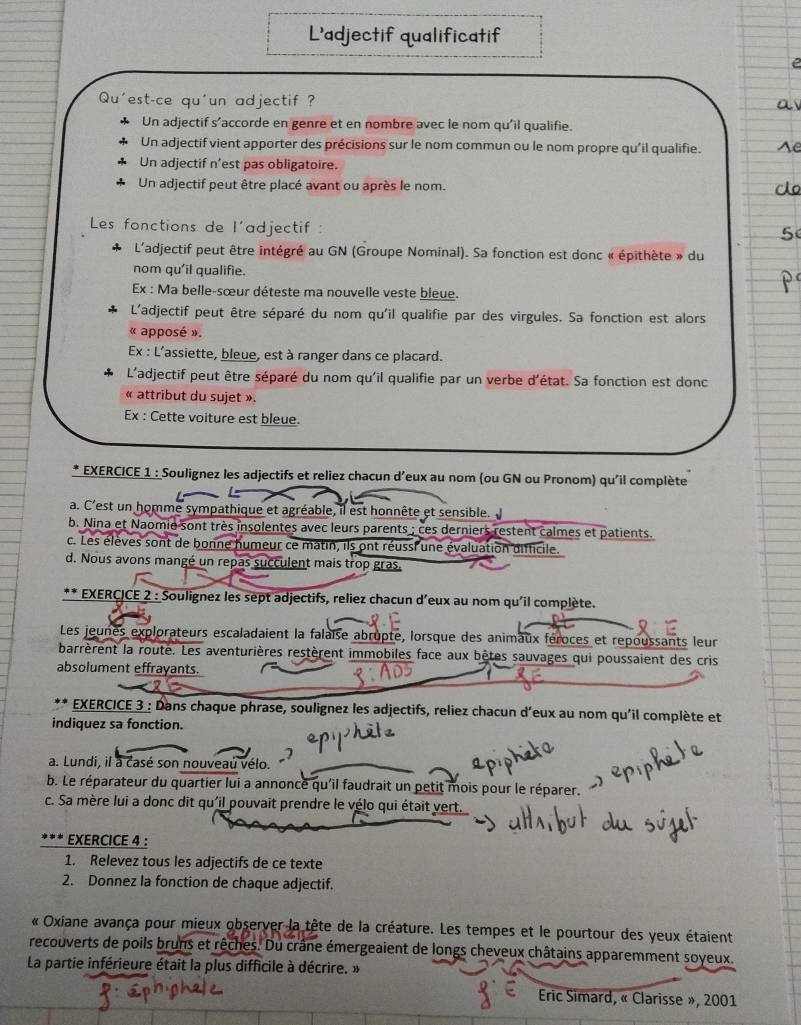 L'adjectif qualificatif
Qu'est-ce qu'un adjectif ?
♣ Un adjectif s'accorde en genre et en nombre avec le nom qu'il qualifie.
♣ Un adjectif vient apporter des précisions sur le nom commun ou le nom propre qu'il qualifie.
♣ Un adjectif n'est pas obligatoire.
♣ Un adjectif peut être placé avant ou après le nom.
Les fonctions de l'adjectif :
♣ L'adjectif peut être intégré au GN (Groupe Nominal). Sa fonction est donc « épithète » du
nom qu'il qualifie.
Ex : Ma belle-sœur déteste ma nouvelle veste bleue.
♣ L'adjectif peut être séparé du nom qu'il qualifie par des virgules. Sa fonction est alors
« apposé ».
Ex : L'assiette, bleue, est à ranger dans ce placard.
♣ L'adjectif peut être séparé du nom qu'il qualifie par un verbe d'état. Sa fonction est donc
« attribut du sujet ».
Ex : Cette voiture est bleue.
* EXERCICE 1 : Soulignez les adjectifs et reliez chacun d'eux au nom (ou GN ou Pronom) qu'il complète
a. C'est un homme sympathique et agréable, il est honnête et sensible.
b. Nina et Naomie sont très insolentes avec leurs parents ; ces derniers restent calmes et patients.
c. Les élèves sont de bonne humeur ce matin, ils ont réussi une évaluation difficile.
d. Nous avons mangé un repas succulent mais trop gras.
** EXERCICE 2 : Soulignez les sept adjectifs, reliez chacun d'eux au nom qu'il complète.
Les jeunes explorateurs escaladaient la falaise abrupte, lorsque des animaux féroces et repoussants leur
barrèrent la route. Les aventurières restèrent immobiles face aux bêtes sauvages qui poussaient des cris
absolument effrayants.
** EXERCICE 3 : Dans chaque phrase, soulignez les adjectifs, reliez chacun d'eux au nom qu'il complète et
indiquez sa fonction.
epiphète
a. Lundi, il a casé son nouveau vélo.
epiphete
b. Le réparateur du quartier lui a annoncé qu'il faudrait un petit mois pour le réparer. → epiphete
c. Sa mère lui a donc dit qu'il pouvait prendre le vélo qui était vert.
→ attribut du sujet
*** EXERCICE 4 :
1. Relevez tous les adjectifs de ce texte
2. Donnez la fonction de chaque adjectif.
« Oxiane avança pour mieux observer la tête de la créature. Les tempes et le pourtour des yeux étaient
recouverts de poils bruns et rêches. Du crâne émergeaient de longs cheveux châtains apparemment soyeux.
La partie inférieure était la plus difficile à décrire. »
Eric Simard, « Clarisse », 2001